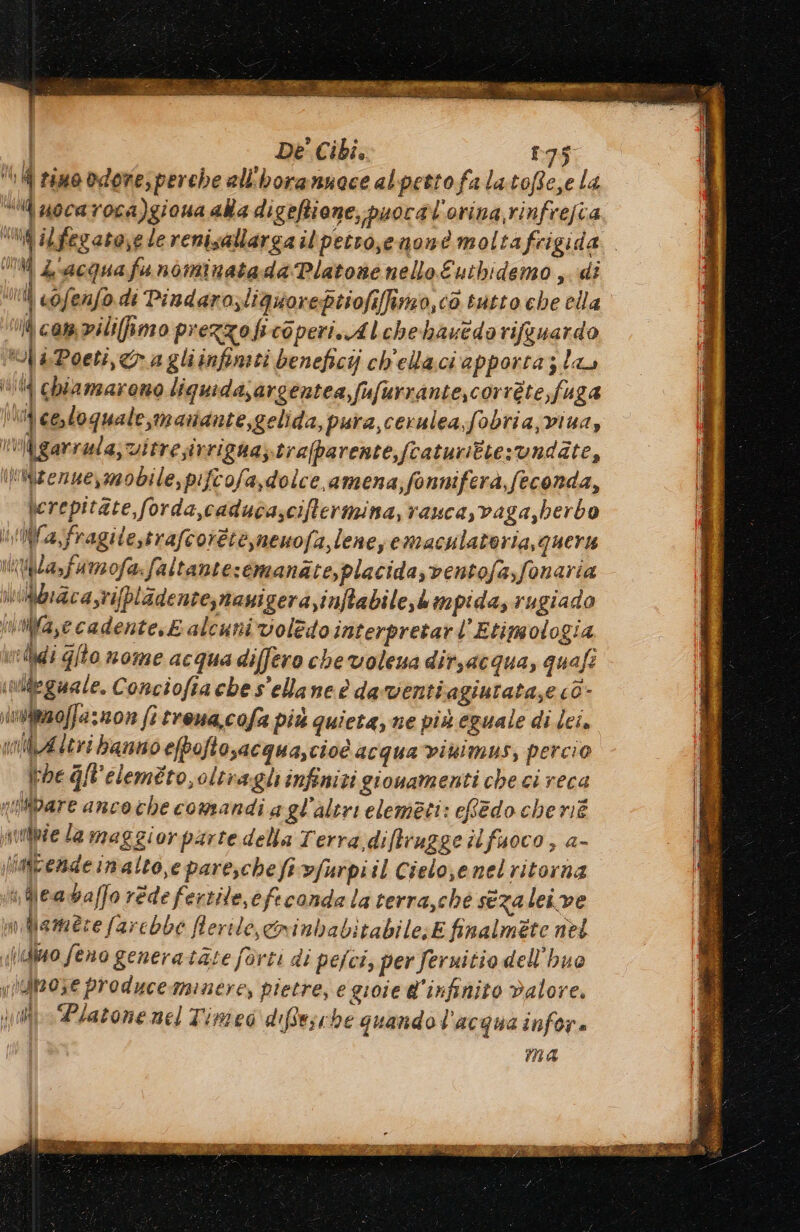 De' Cibi. 175
tiuo odore, perche all'hora nuoce al petto fa la tosse, e la
uoca roca) gioua alla digeſtione, puoca l'orina, rinfreſca
il fegato, e le reni, allarga il petto, e non è molta frigida
L'acqua fu nominata da Platone nello Euthidemo, di
cõſenſo di Pindaro, liquore ptioſiſſimo, cõ tutto che ella
cam viliſſimo prezzo ſi cõperi. Al che hauẽdo riſguardo
i Poeti, & a gli infiniti beneficij ch'ella ci apporta; la
chiamarono liquida, argentea, ſuſurrante, corrẽte, fuga
ce, loquale, manante, gelida, pura, cerulea, ſobria, viua,
garrula, vitre, irrigua, traſparente, ſcaturiẽte: undãte,
tenue, mobile, piſcoſa, dolce, amena, ſonnifera, feconda,
crepitãte, ſorda, caduca, ciſtermina, rauca, vaga, herbo
ſa, fragile, traſcorẽte, neuoſa, lene, emaculatoria, queru
la, fumoſa. ſaltante: emanãte, placida, ventoſa, ſonaria
biãca, riſplãdente, nauigera, inſtabile, limpida, rugiado
ſa, e cadente. E alcuni volẽdo interpretar l'Etimologia
di q̃ſto nome acqua diſſero che voleua dir, acqua, quaſi
eguale. Concioſia che s'ella ne è da venti agiutata, e cõ-
moſſa: non ſi troua, coſa più quieta, ne più eguale di lei.
Altri hanno eſpoſto, acqua, cioè acqua viuimus, percio
che q̃ſt'elemẽto, oltra gli infiniti giouamenti che ci reca
pare anco che comandi a gl'altri elemẽti: eſsẽdo che riẽ
pie la maggior parte della Terra, diſtrugge il fuoco, a-
ſcende in alto, e pare, che ſi vſurpi il Cielo, e nel ritorna
re a baſſo rẽde fertile, e feconda la terra, che sẽza lei ve
ramẽte ſarebbe ſterile, & inhabitabile; E finalmẽte nel
ſuo ſeno genera tãte ſorti di peſci, per ſeruitio dell'huo
mo, e produce minere, pietre, e gioie d'infinito valore.
Platone nel Timeo diſſe, che quando l'acqua infor-
ma